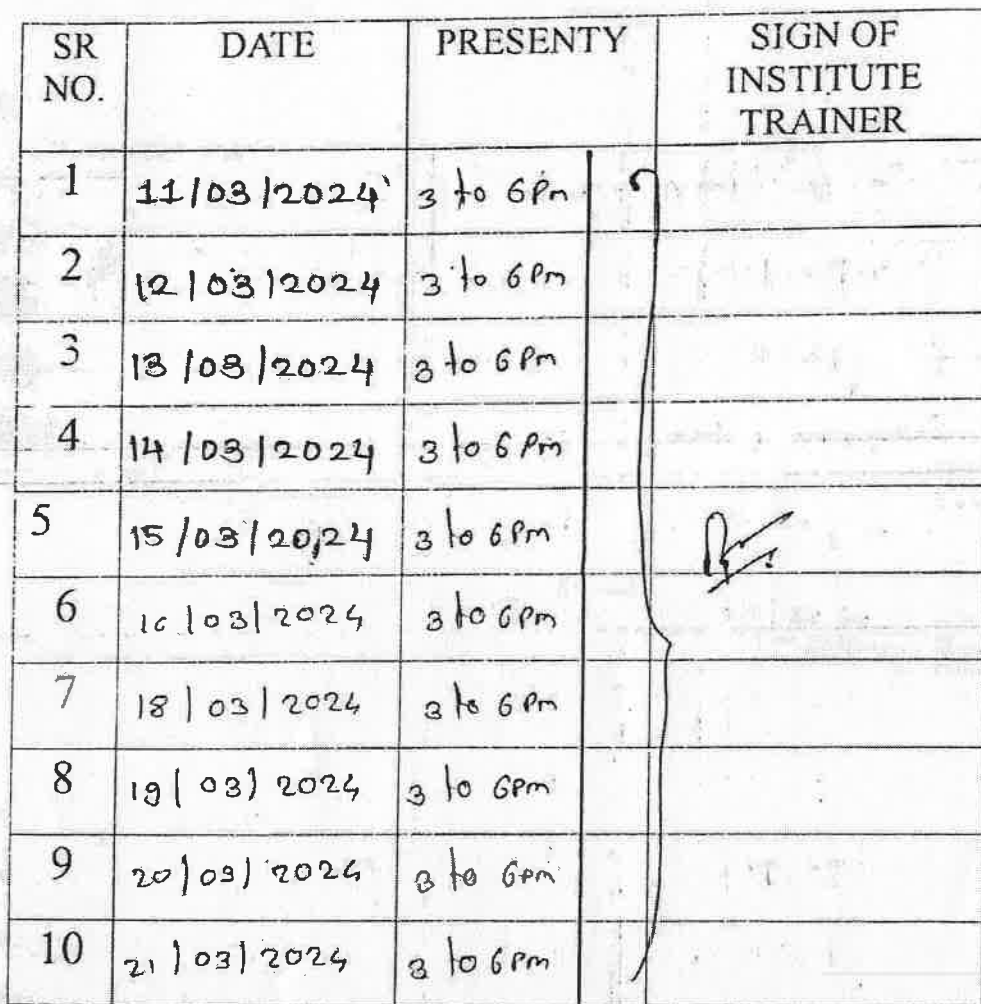 SR NO. DATE PRESENTY SIGN OF INSTITUTE TRAINER
1 11/03/2024 3 to 6Pm
2 12/03/2024 3 to 6Pm
3 13/03/2024 3 to 6Pm
4 14/03/2024 3 to 6Pm
5 15/03/2024 3 to 6Pm
6 16/03/2024 3 to 6Pm
7 18/03/2024 3 to 6Pm
8 19/03/2024 3 to 6Pm
9 20/03/2024 3 to 6pm
10 21/03/2024 3 to 6Pm